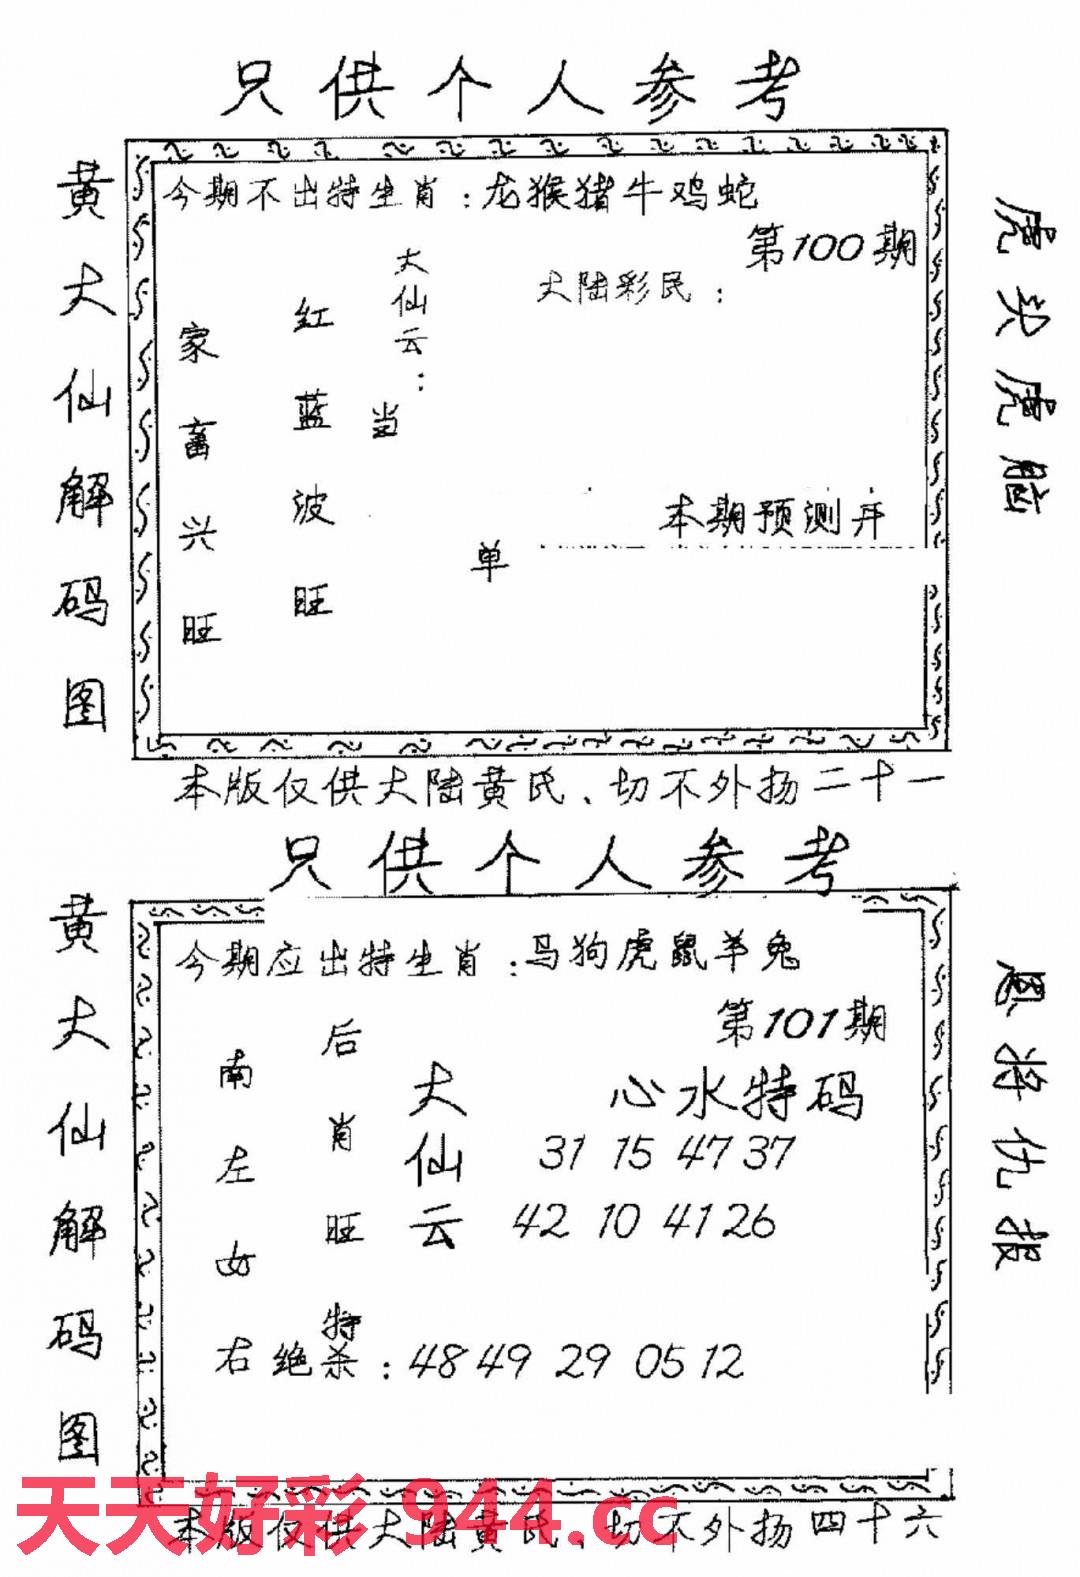 只供个人参考
黄大仙解码图
今期不出特生肖：龙猴猪牛鸡蛇
第100期
大陆彩民：
大仙云：
红蓝波旺
家畜兴旺
当
单
本期预测开
虎头虎脑
本版仅供大陆黄氏、切不外扬二十一
只供个人参考
黄大仙解码图
今期应出特生肖：马狗虎鼠羊兔
第101期
心水特码
大仙云
31 15 47 37
42 10 41 26
后肖旺特
南左女右
绝杀：48 49 29 05 12
恩将仇报
天天好彩 944.cc
本版仅供大陆黄氏、切不外扬四十六